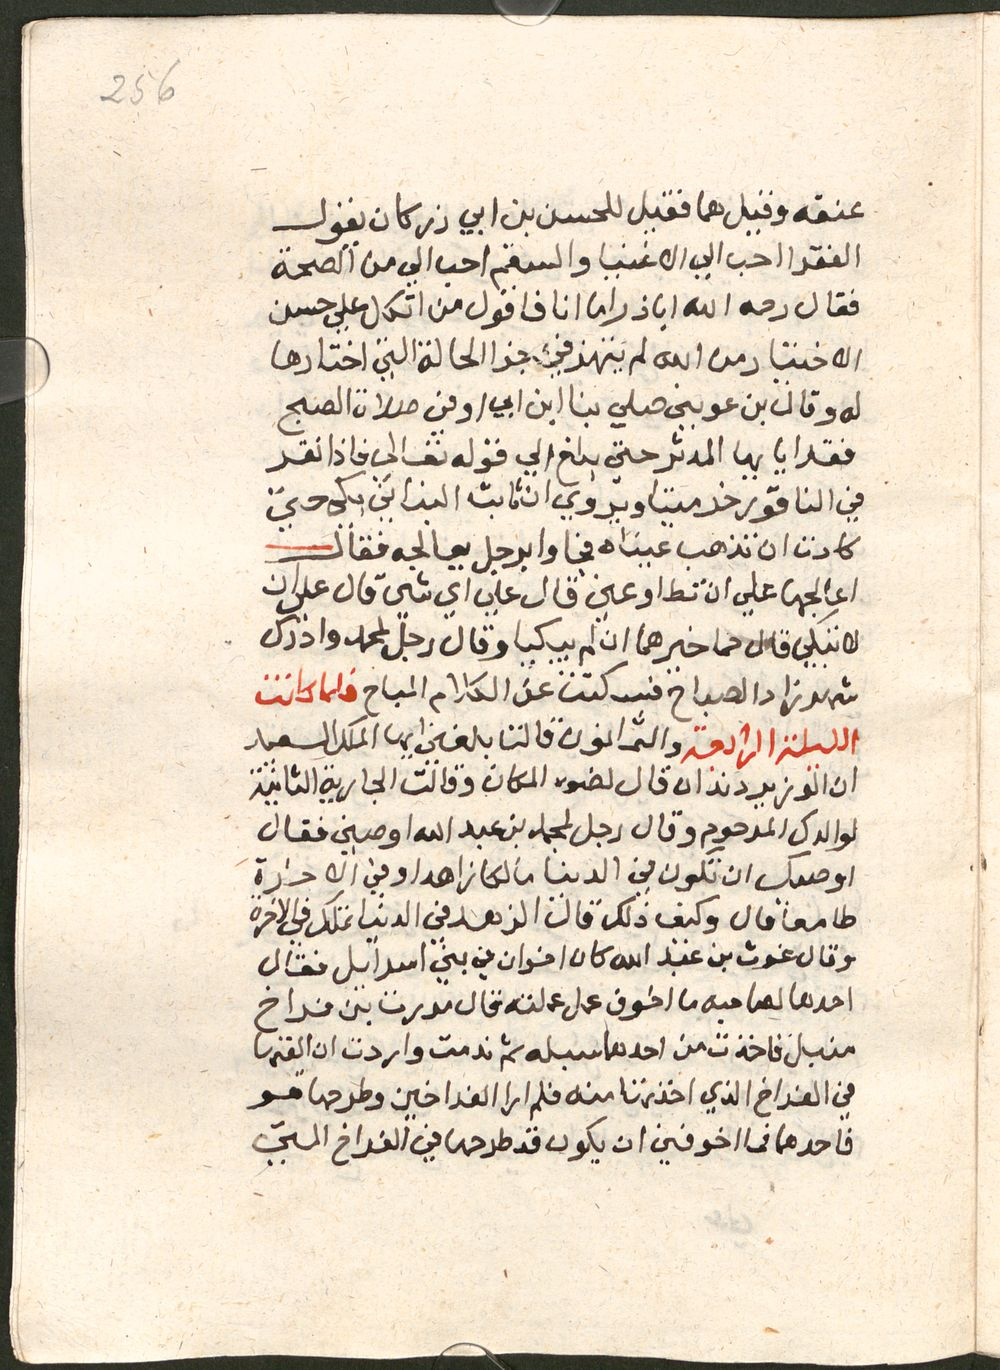 256
عنقه وقبيل هما فقيل للحسن بن ابي ذر كان يقول
الفقرا احب الي الاغنيا والسقم احب الي من الصحة
فقال رحه الله اباذر اما انا فاقول من اتكل علي حسن
الاختيار من الله لم يتهز في جزا الحالة التي اختارها
له وقال بن عوبني صلي بنا ابن ابي اوفي صلاة الصبح
فقرا يا يها المدثر حتي بلغ الي قوله تعالي فاذا نقر
في الناقور خر ميتا ويروي ان ثابت البناني بكي حتي
كادت ان تذهب عيناه فجاوا برجل يعالجه فقال
اعالجها علي ان تطاوعني قال علي اي شي قال علي ان
لا تبكي قال فما خيرهما ان لم يبكيا وقال رجل لمحمد وادرك
شهرزاد الصباح فسكتت عن الكلام المباح فلما كانت
الليلة الرابعة والثمانون قالت بلغني ايها الملك السعيد
ان الوزير دندان قال لضو المكان وقالت الجارية الثانية
لوالدك المرحوم وقال رجل لمحمد بن عبد الله اوصيني فقال
اوصيك ان تكون في الدنيا مالكا زاهدا وفي الاخرة
طامعا قال وكيف ذلك قال الزهد في الدنيا تملك في الاخرة
وقال غوث بن عبد الله كان اخوان في بني اسرايل فقال
احدهما لصاحبه ما اخوف عمل عملته قال مررت بين فراخ
سنبل فاخذت من احدهما سبله ثم ندمت واردت ان القيها
في الفراخ الذي اخذتها منه فلم ارا الفراخين وطرحها هو
فاحدهما فما اخوفني ان يكون قد طرحها في الفراخ التي